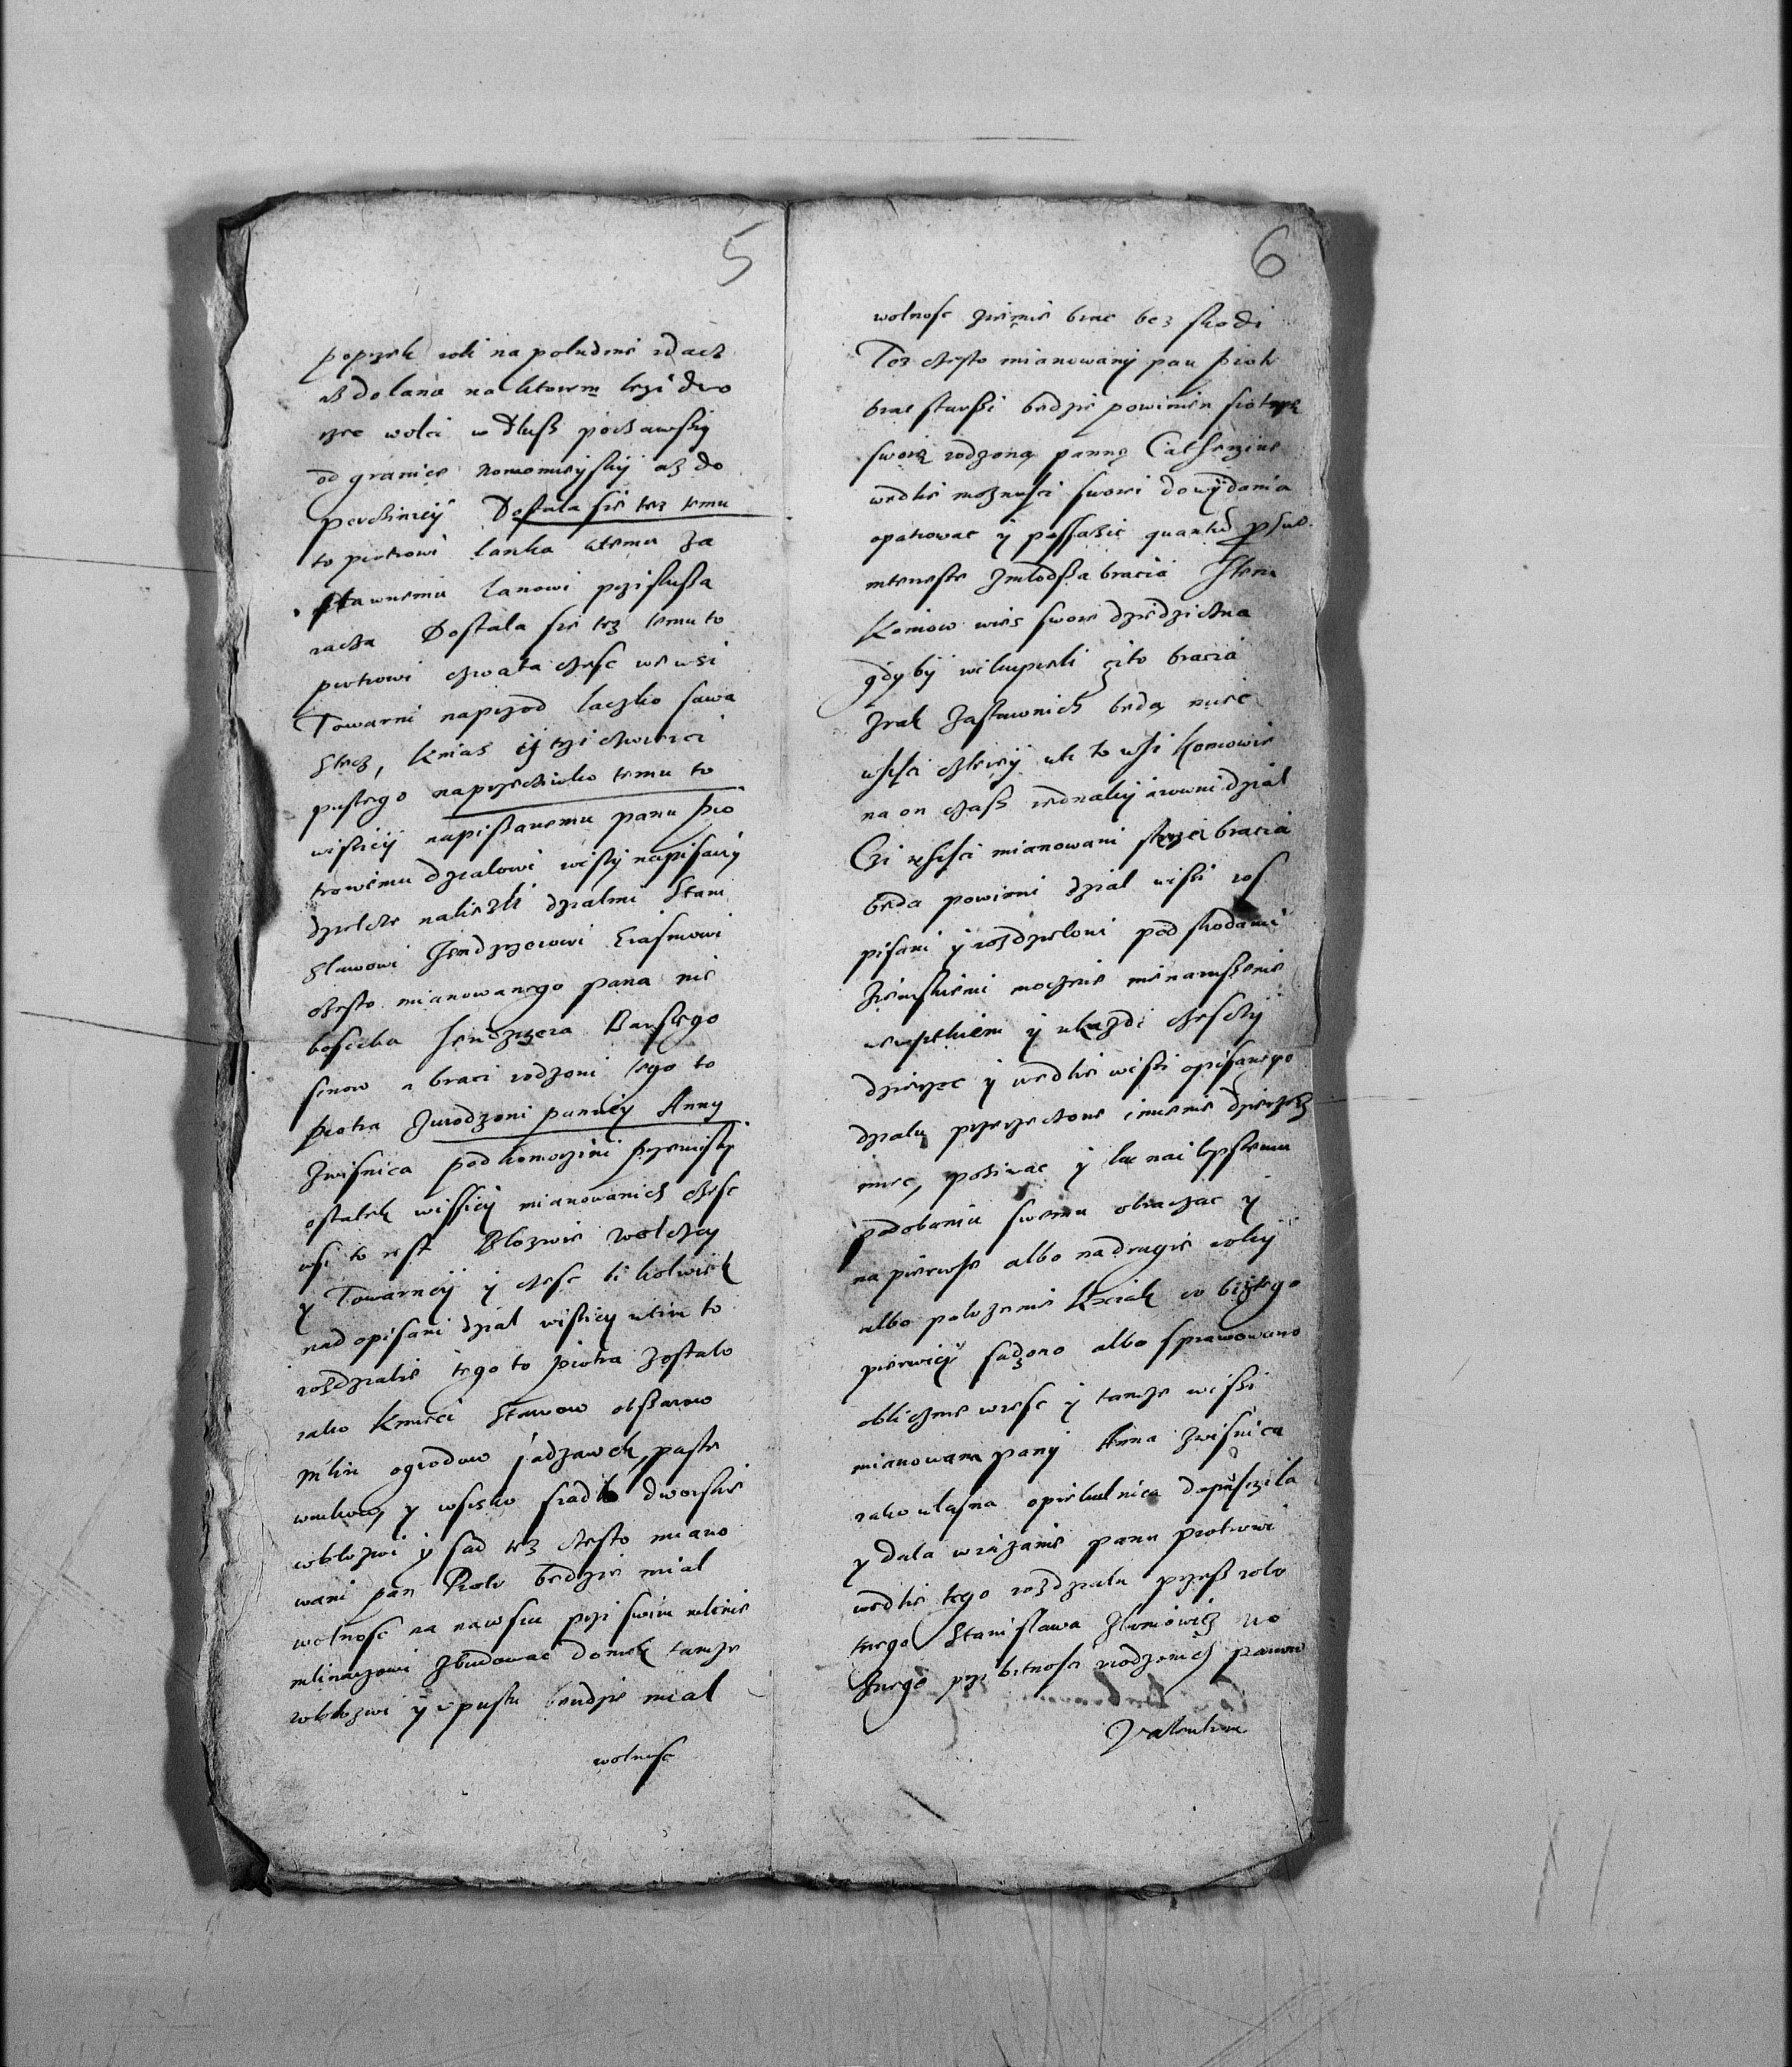 5
poprzek roli na poludnie idacz
asz do lana na ktorem lezi dwo
rzec wolei w dlusz pociawszy
od granice nowomieyskiy asz do
Dostala sie tez temu
to piotrowi lanka ktemu za
stawnemu lanowi przislusza
iacza Dostala sie tez temu to
piotrowi czwarta czesc we wsi
Towarni naprzod laczko sawa
Stecz, kmiec y trzi czwierci
pustego naprzecziwko temu to
wissiey napisanemu panu pio
trowemu dzialowi wissy napisany
dzielcze nalezli dzialmi Stani
slawowi Jendrzeiowi Erasmowi
czesto mianowanego pana nie
boscika Jendrzeia Barskego
sinow a braci rodzoni tego to
piotra Zurodzoni panniey Anny
Zwisnica podkomorzini przemiskiy
ostatek wissiey mianowanich czesc
wsi to iest Blozwie Wolczey
y Towarniey y czesc li kolwiek
nad opisani dzial wissiey wtim to
rozdziale tego to piotra zostalo
iako kmieci Stawow obszarow
mlin ogrodow sadzawek, puste
y wsisko siadlo dworskie
wblozwi y sad tez czesto miano
wani pan Piotr bedzie mial
wolnosc na nawsiu przi swim mlinie
mlinarzowi zbudowac domek tamze
wblozwi y vpustu bendzie mial
wolnosc
6
wolnosc ziemie brac bez skodi
Tez czesto mianowany pan piotr
brat starszi bedzie powinien siostre
swoię rodzoną pannę Catherzine
wedlie moznosci swoiei do wydania
opatrowac y possazic
interesse zmlodsza bracia Item
Koniow wies swoie dziedziczna
gdyby wikupieli czito bracia
zrąk zastawnich beda miec
wsisci czterzy wte to wsi koniowie
na on czasz iednakiy irowni dzial
Czi wsisci mianowani sterzei bracia
beda powinni dzial wissi ros
pisani y rozdzieloni pod skodami
ziemskiemi moczenie nienaruszenie
wewsitkiem y wkazdi czesczy
dzierzec y wedlie wissi opisanego
dzialu przerzeczone imienie dzierzecz
miec, poziwac y ku nai lepszemu
podobaniu swemu obraczac y
na pierwsze albo na drugie rokiy
albo polozenie
pierwiey sadzono albo sprawowano
obliczenie wiesc y tamze wissi
mianowana pany Anna Zwisnica
iako wlasna opiekulnica dopuscila
y dala wiazanie panu piotrowi
wedlie tego rozdzialu przesz rolo
tnego Stanislawa Wo
znego przi bitnosci urodzonich panow
Valentim